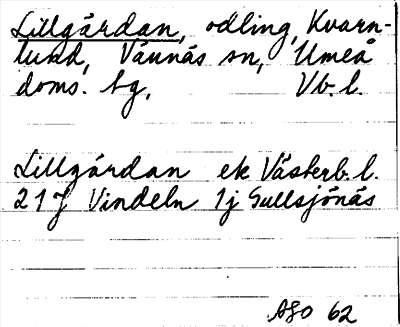 Lillgårdan, odling, Kvarn-
lund, Vännäs sn, Umeå
doms. hg, Vb. l.
Lillgårdan ek Västerb. l.
21J Vindeln 1j Gullsjönäs
ASO 62